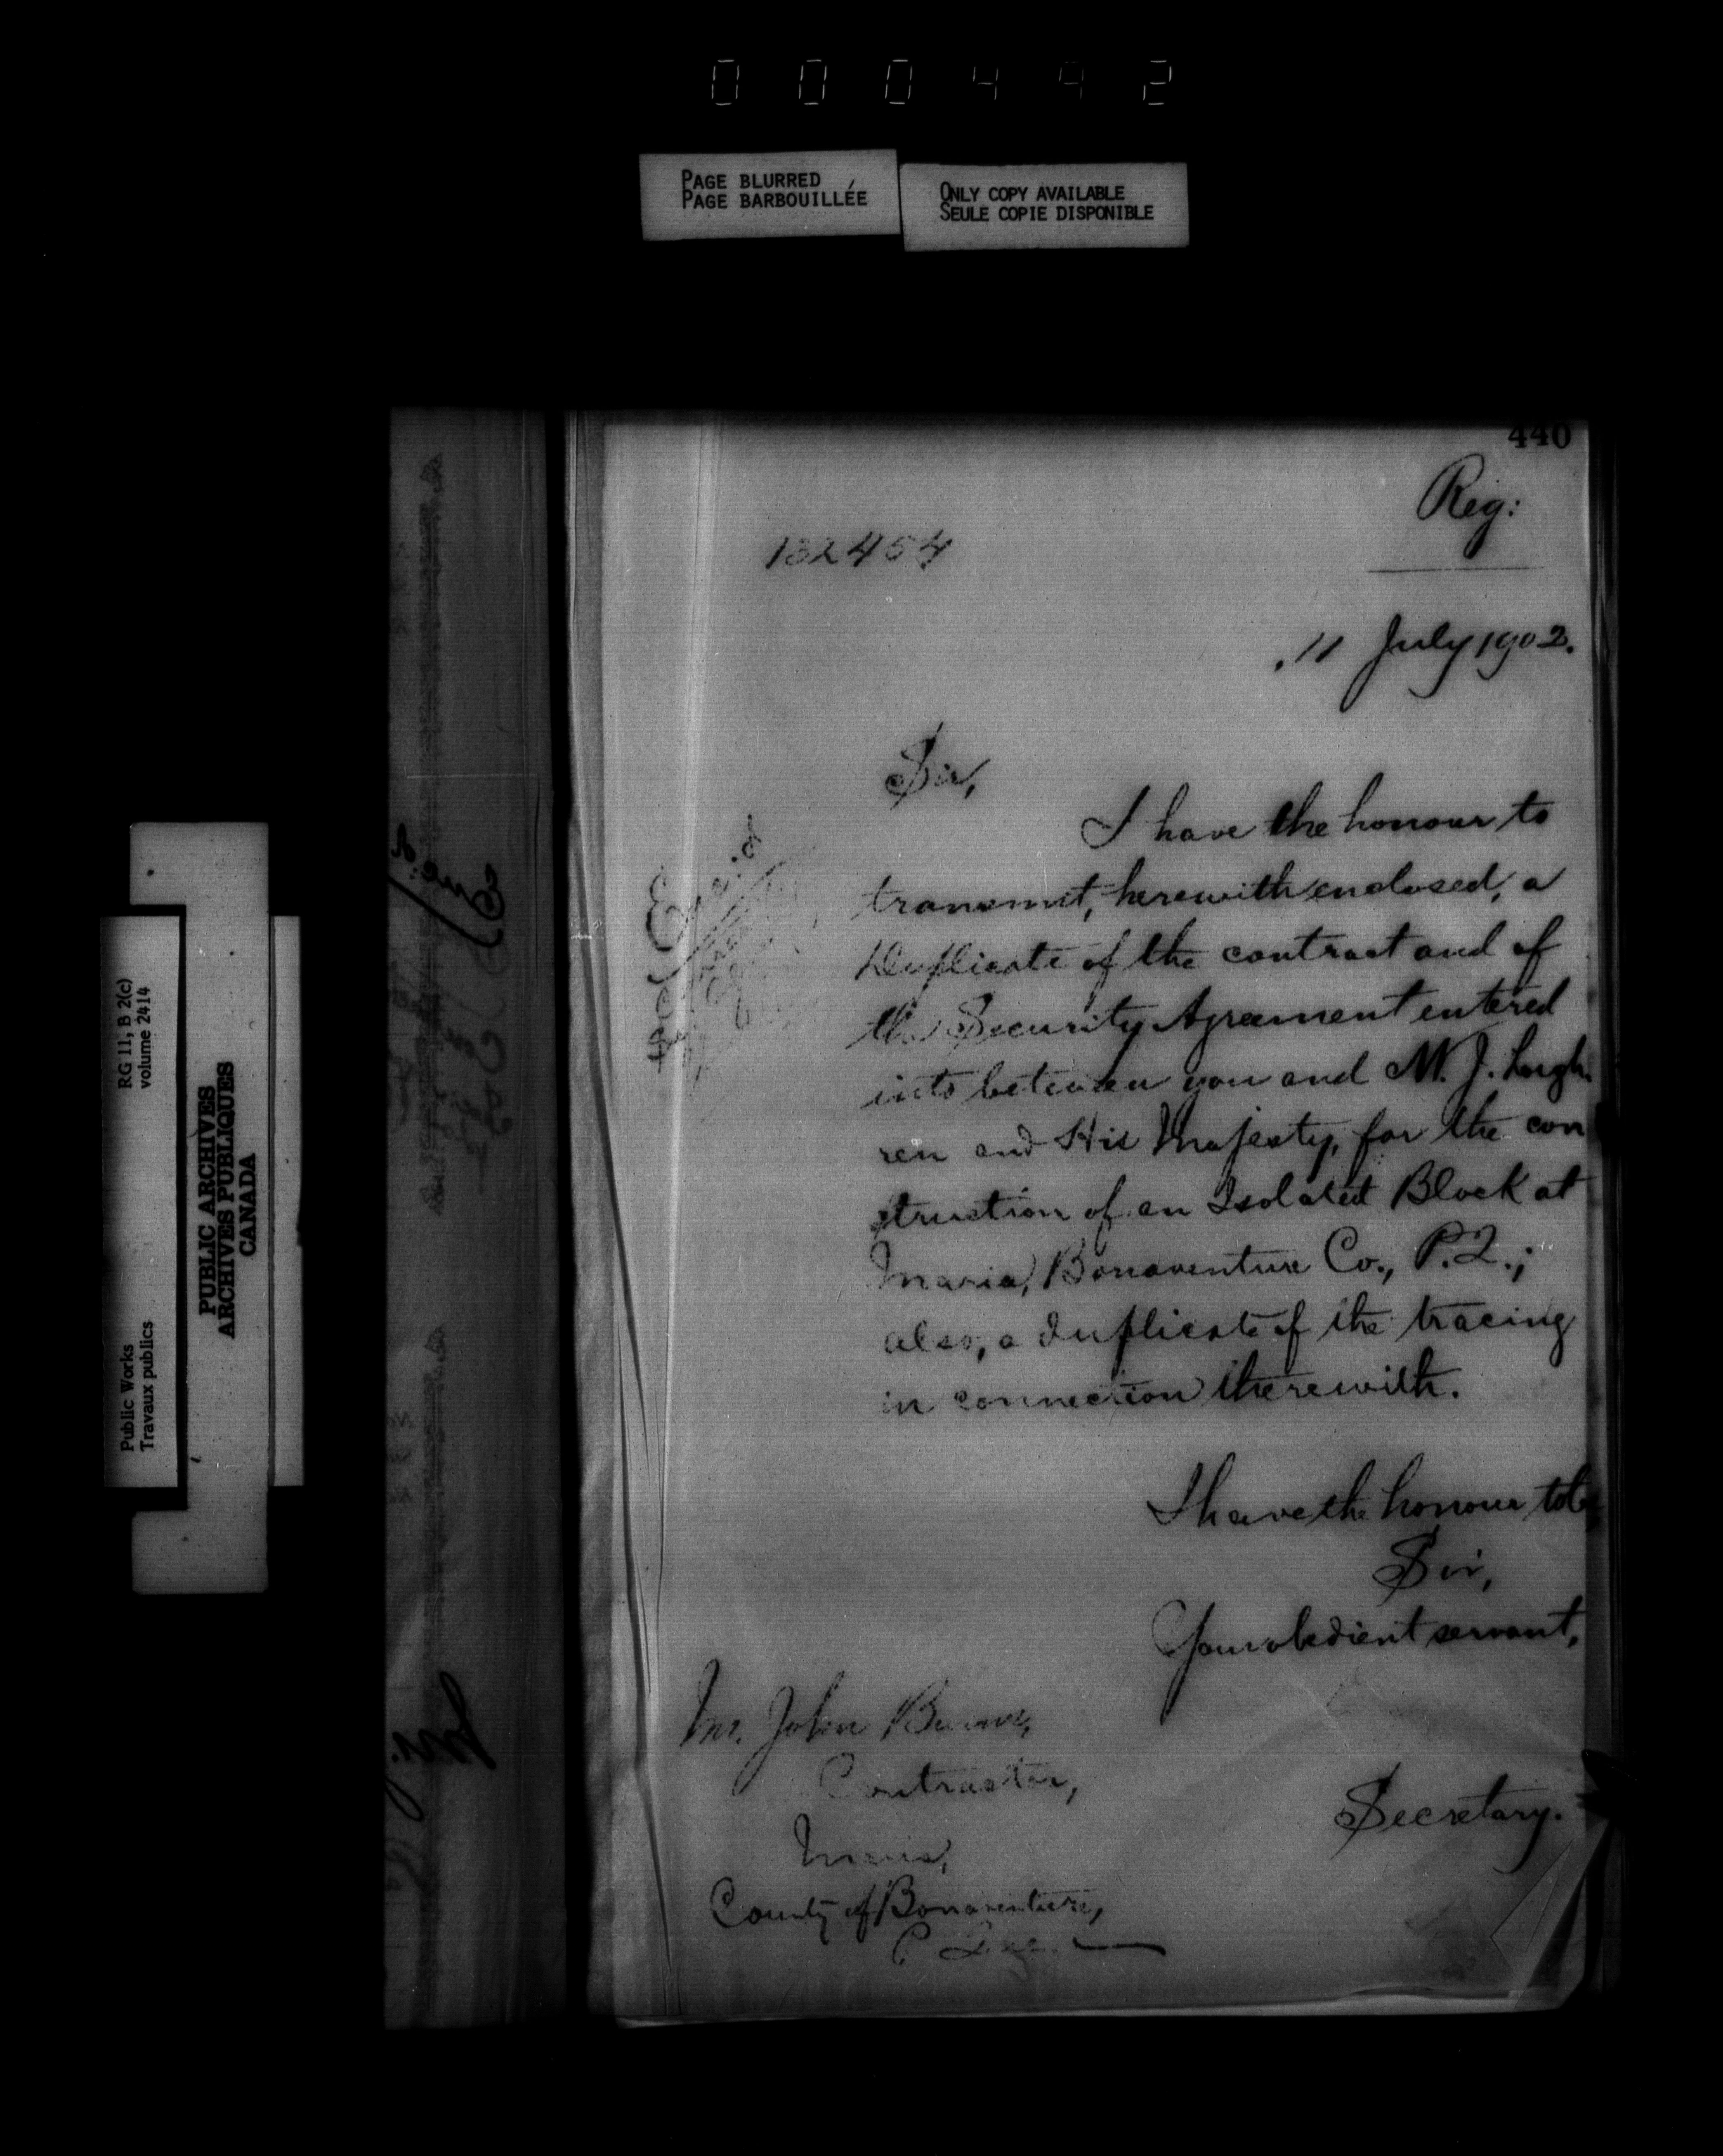 000442
PAGE BLURRED
PAGE BARBOUILLÉE
ONLY COPY AVAILABLE
SEULE COPIE DISPONIBLE
440
Reg:
132454
11 July 1902.
Sir,
I have the honour to
transmit, herewith enclosed, a
Duplicate of the contract and of
the Security Agreement entered
into between you and M. J. Lough
ren and His Majesty, for the con
struction of an Isolated Block at
Maria, Bonaventure Co., P.Q.;
also, a duplicate of the tracing
in connection therewith.
I have the honour to be
Sir,
Your obedient servant,
Mr. John
Contractor,
Secretary.
Maria,
County of Bonaventure,
P. Que.
RG 11, B 2(c)
volume 2414
Public Works
Travaux publics
PUBLIC ARCHIVES
ARCHIVES PUBLIQUES
CANADA